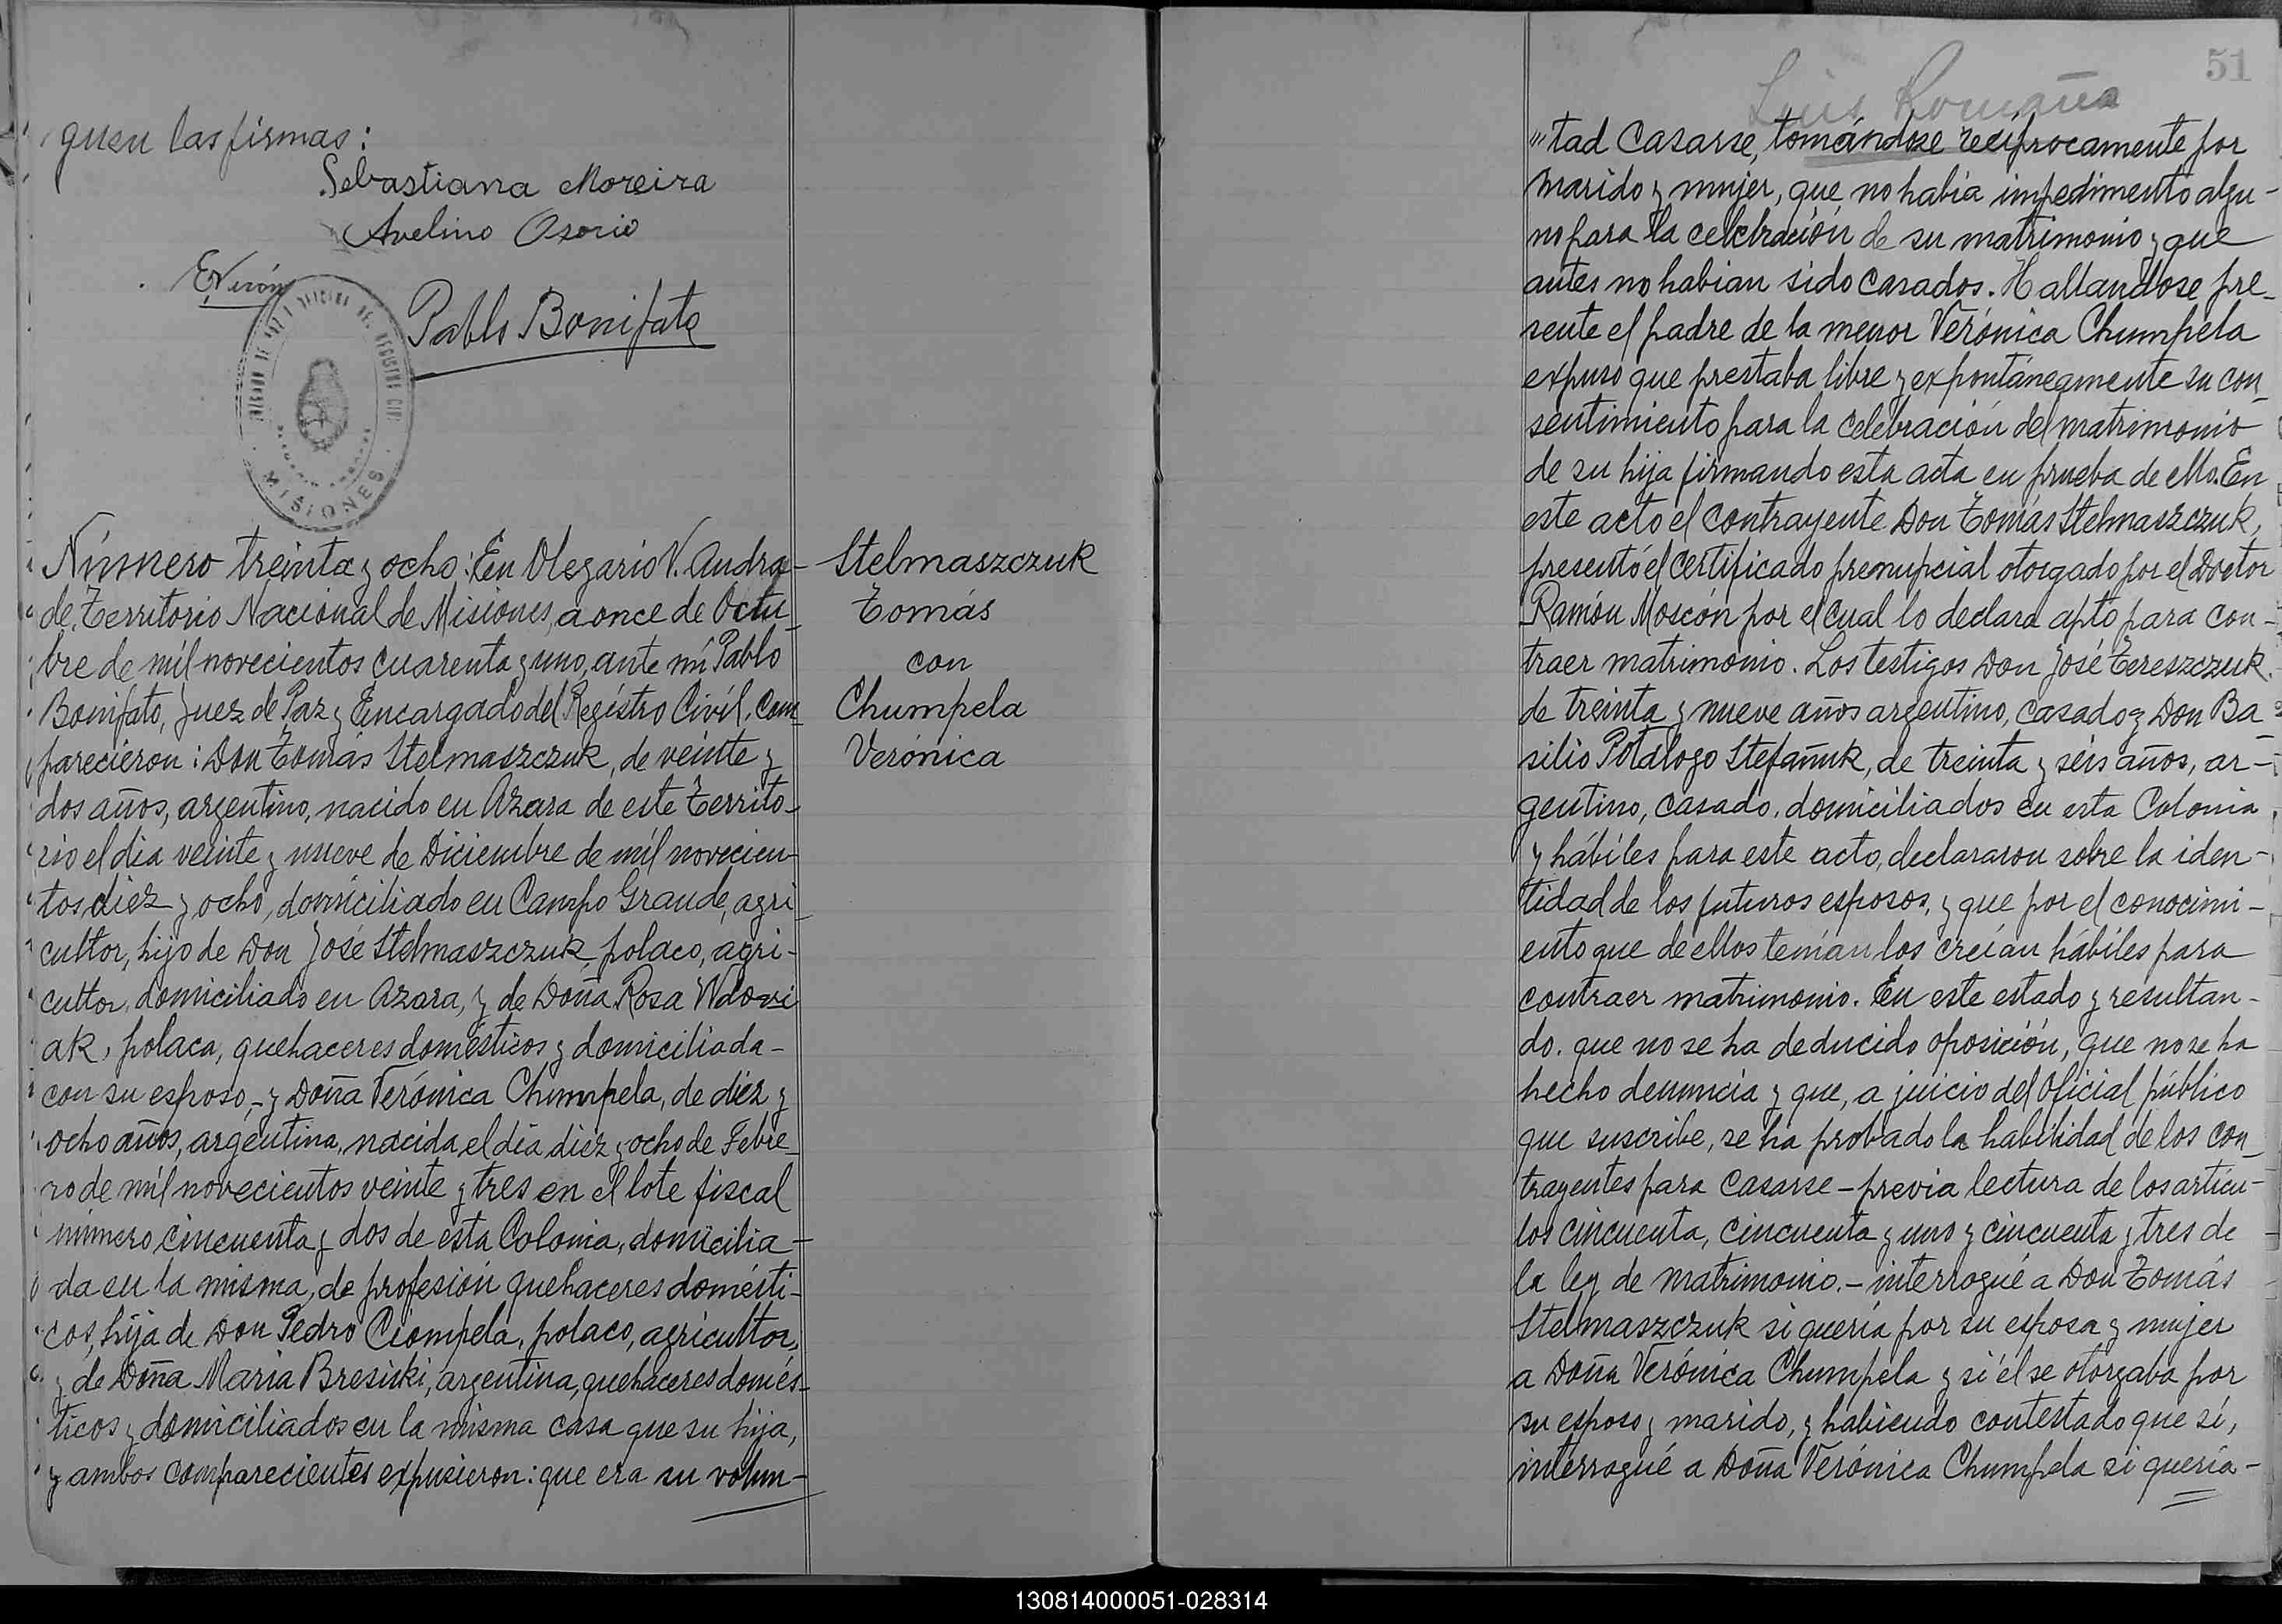 guen las firmas:
Sebastiana Moreira
Avelino Osorio
Pablo Bonifato
MISIONES
Número treinta y ocho: En Olegario V. Andra-
de, Territorio Nacional de Misiones, a once de Octu-
bre de mil novecientos cuarenta y uno, ante mí Pablo
Bonifato, Juez de Paz y Encargado del Registro Civil. Com-
parecieron: Don Tomás Stelmaszczuk, de veinte y
dos años, argentino, nacido en Azara de este Territo-
rio el dia veinte y nueve de Diciembre de mil novecien-
tos diez y ocho, domiciliado en Campo Grande, agri-
cultor, hijo de Don José Stelmaszczuk, polaco, agri-
cultor, domiciliado en Azara, y de Doña Rosa Wdowi
ak, polaca, quehaceres domésticos y domiciliada-
con su esposo,- y Doña Verónica Chumpela, de diez y
ocho años, argentina, nacida el día diez y ocho de Febre-
ro de mil novecientos veinte y tres en el lote fiscal
número cincuenta y dos de esta Colonia, domicilia-
da en la misma, de profesión quehaceres domésti-
cos, hija de Don Pedro Ciompela, polaco, agricultor,
y de Doña Maria Bresiski, argentina, quehaceres domés-
ticos y domiciliados en la misma casa que su hija,
y ambos comparecientes expusieron: que era su volun-
Stelmaszczuk
Tomás
con
Chumpela
Verónica
51
Luis Romaña
"tad casarse, tomándose recíprocamente por
marido y mujer, que no habia impedimento algu-
no para la celebración de su matrimonio y que
antes no habian sido casados. Hallandose pre-
sente el padre de la menor Verónica Chumpela
expuso que prestaba libre y expontáneamente su con-
sentimiento para la celebración del matrimonio
de su hija firmando esta acta en prueba de ello. En
este acto el contrayente Don Tomás Stelmaszczuk,
presentó el certificado prenupcial otorgado por el Doctor
Ramón Moscón por el cual lo declara apto para con-
traer matrimonio. Los testigos Don José Tereszczuk
de treinta y nueve años argentino, casado y Don Ba-
silio Potálogo Stefañuk, de treinta y séis años, ar-
gentino, casado, domiciliados en esta Colonia
y hábiles para este acto, declararon sobre la iden-
tidad de los futuros esposos, y que por el conocimi-
ento que de ellos tenían los creían hábiles para
contraer matrimonio. En este estado y resultan-
do. que no se ha deducido oposición, que no se ha
hecho denuncia y que, a juicio del Oficial público
que suscribe, se ha probado la habilidad de los con-
trayentes para casarse - previa lectura de los artícu-
los cincuenta, cincuenta y uno y cincuenta y tres de
la ley de matrimonio.- interrogué a Don Tomás
Stelmaszczuk si quería por su esposa y mujer
a Doña Verónica Chumpela y si él se otorgaba por
su esposo y marido, y habiendo contestado que sí,
interrogué a Doña Verónica Chumpela si quería-
130814000051-028314